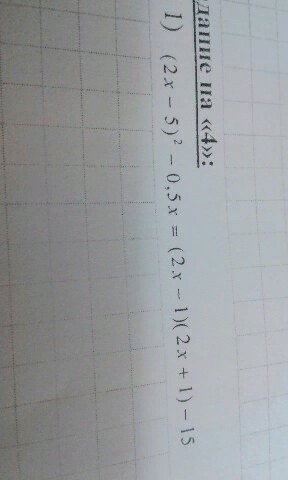 дание на «4»:
1) (2x − 5)² − 0,5x = (2x − 1)(2x + 1) − 15